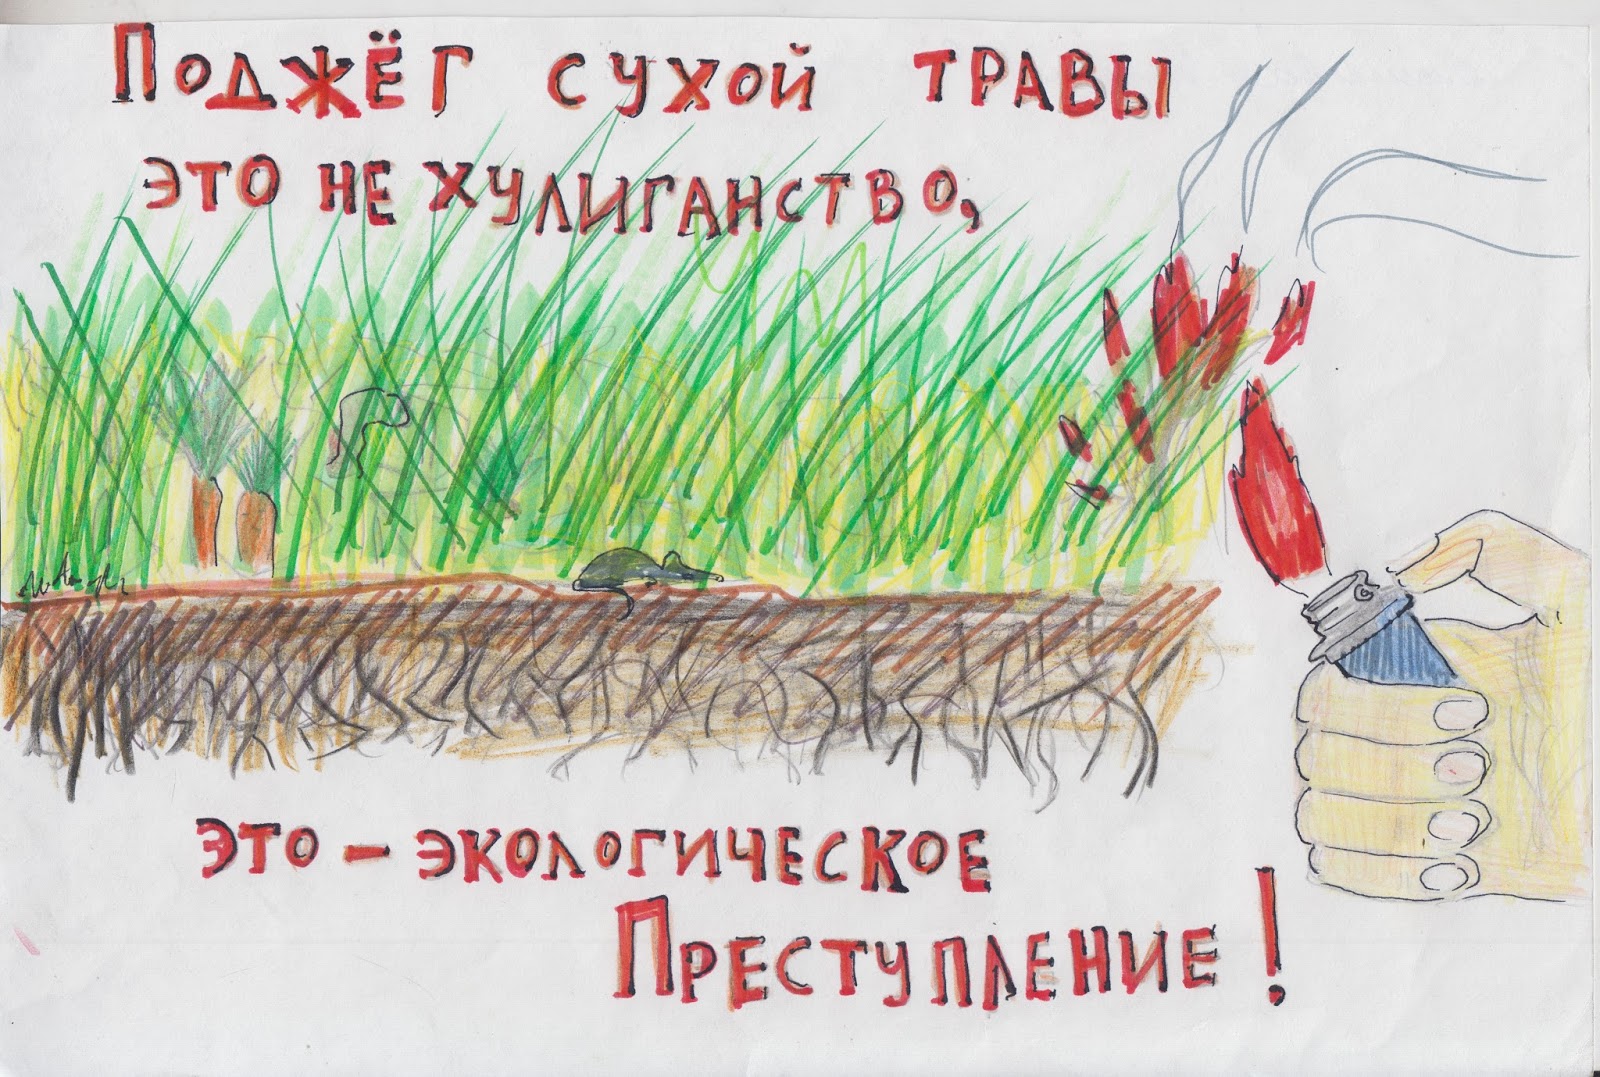 Поджёг сухой травы
это не хулиганство,
это – экологическое
Преступление!